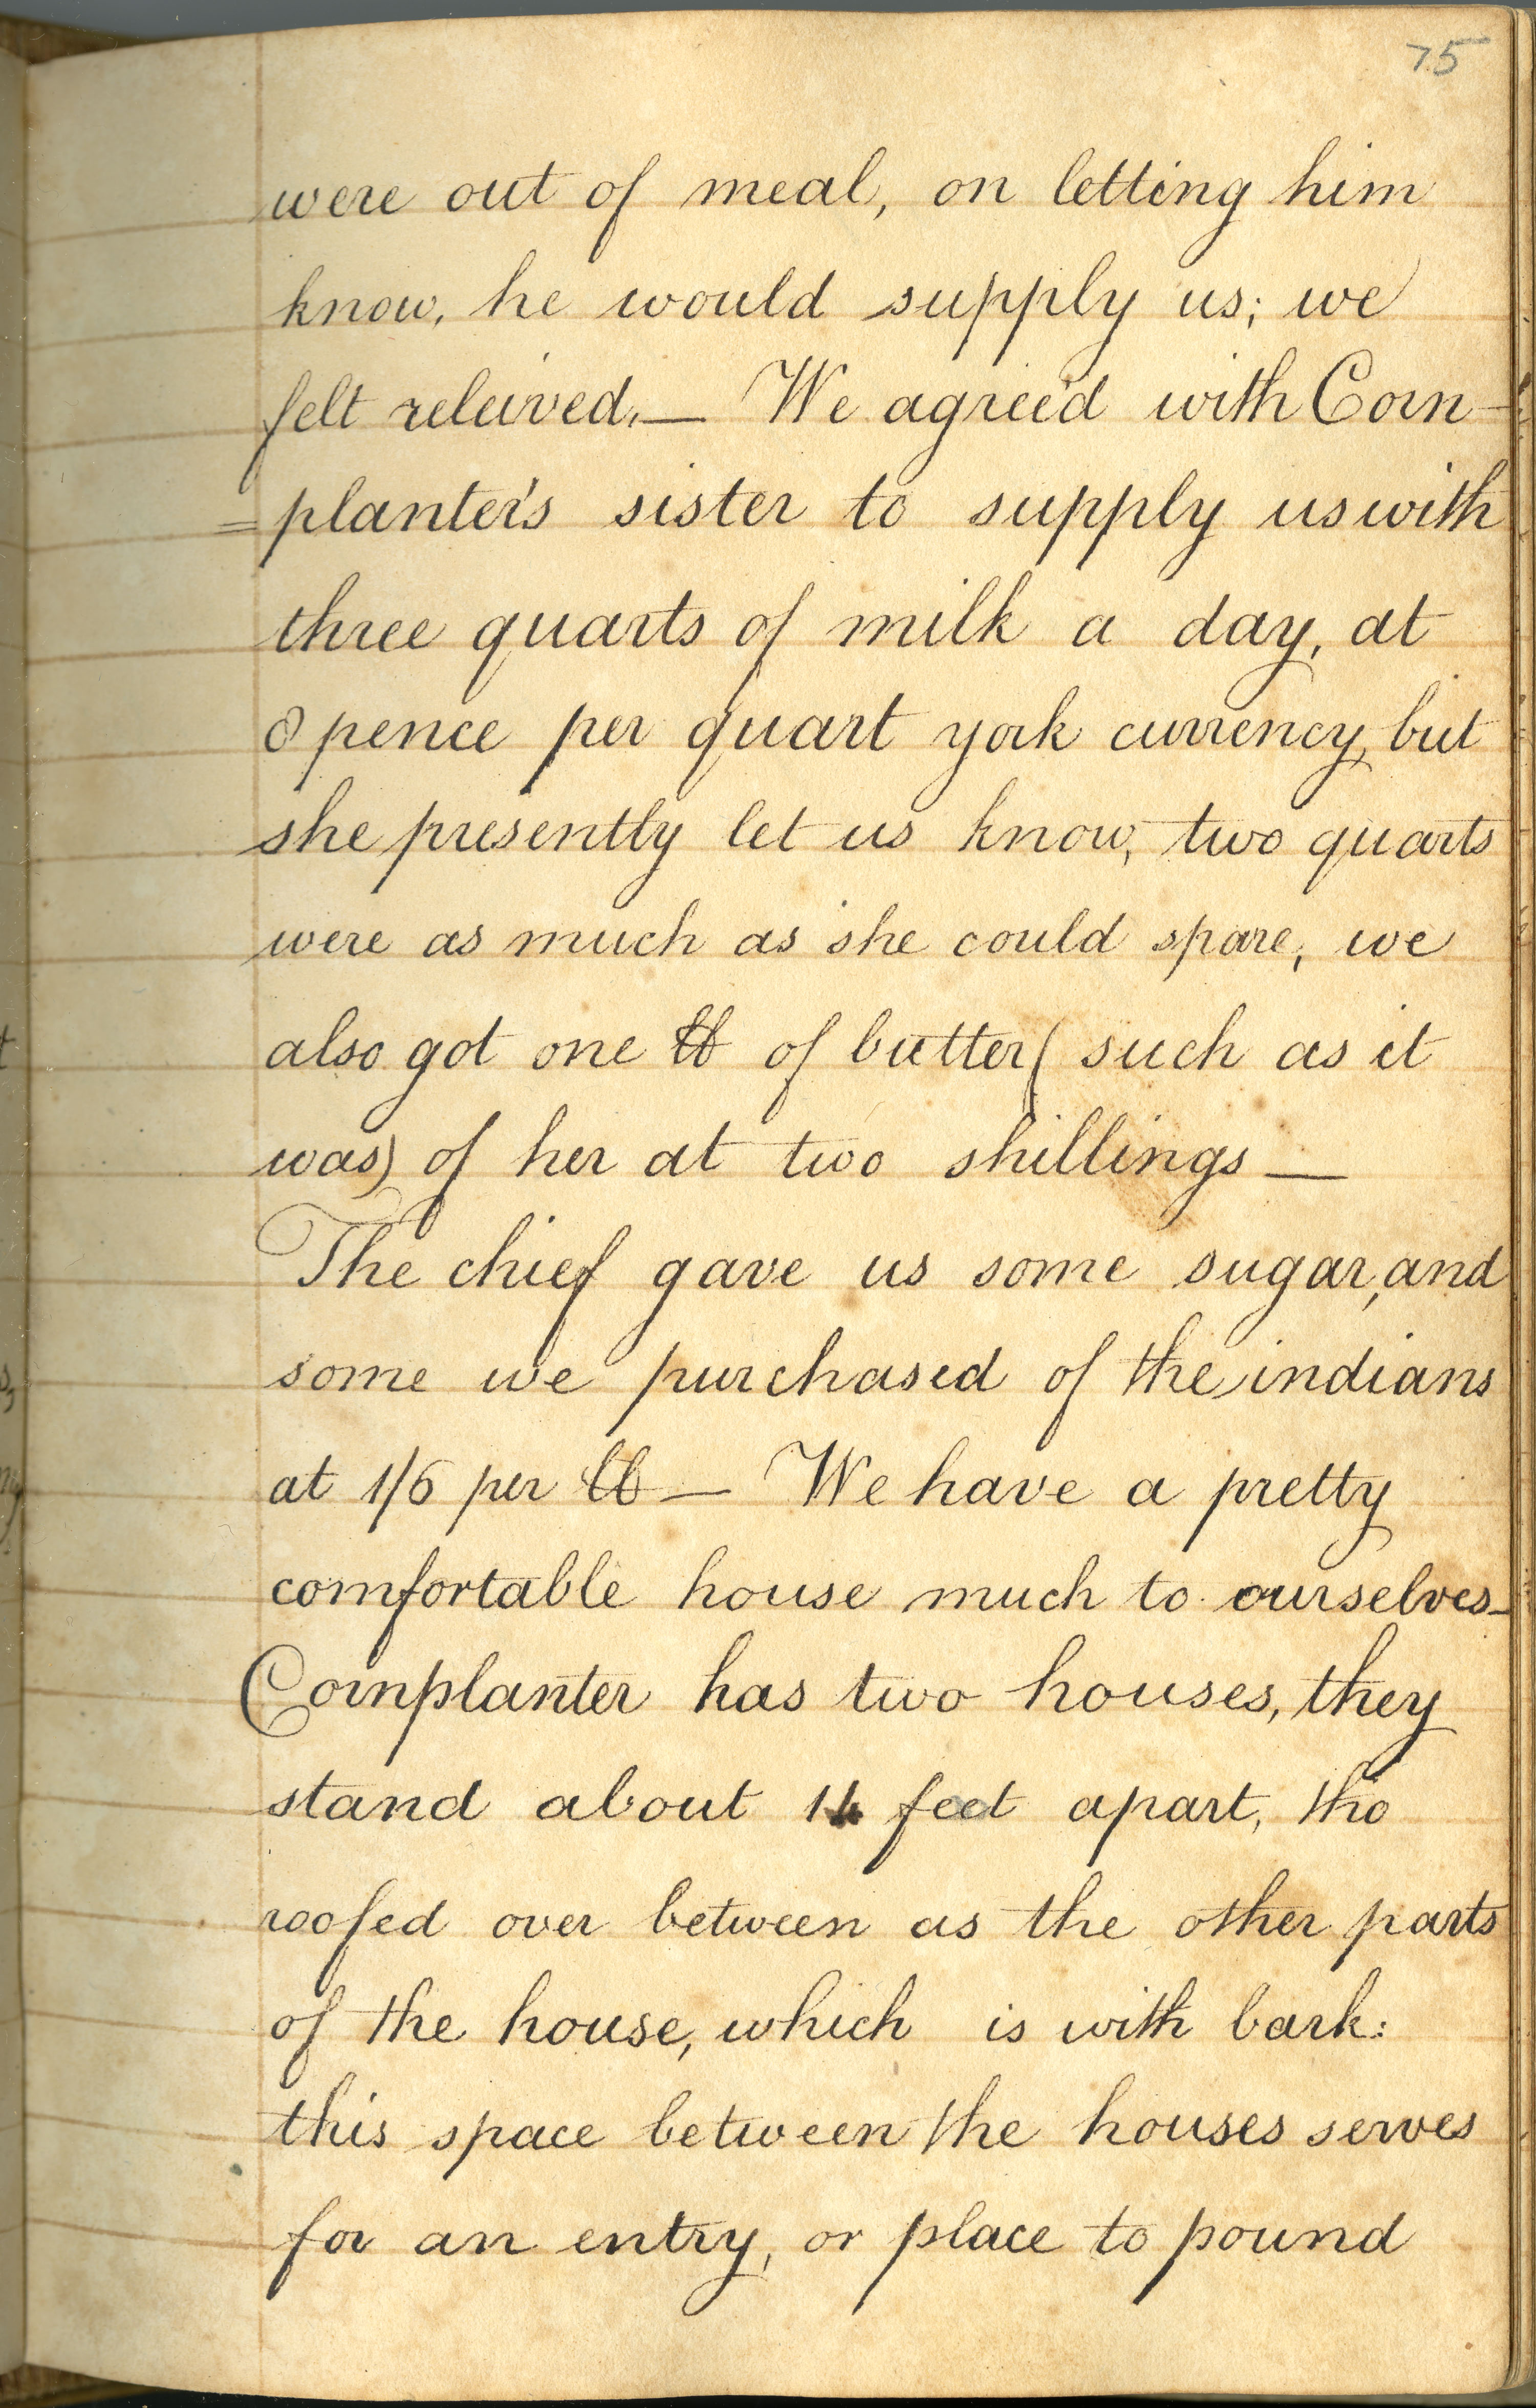 75
were out of meal, on letting him
know, he would supply us; we
felt releived,— We agree'd with Corn-
=planter's sister to supply us with
three quarts of milk a day, at
8 pence per quart york currency, but
she presently let us know, two quarts
were as much as she could spare, we
also got one lb of butter (such as it
was) of her at two shillings—
The chief gave us some sugar, and
some we purchased of the indians
at 1/6 per lb — We have a pretty
comfortable house much to ourselves_
Cornplanter has two houses, they
stand about 14 feet apart, tho
roofed over between as the other parts
of the house, which is with bark:
this space between the houses serves
for an entry, or place to pound